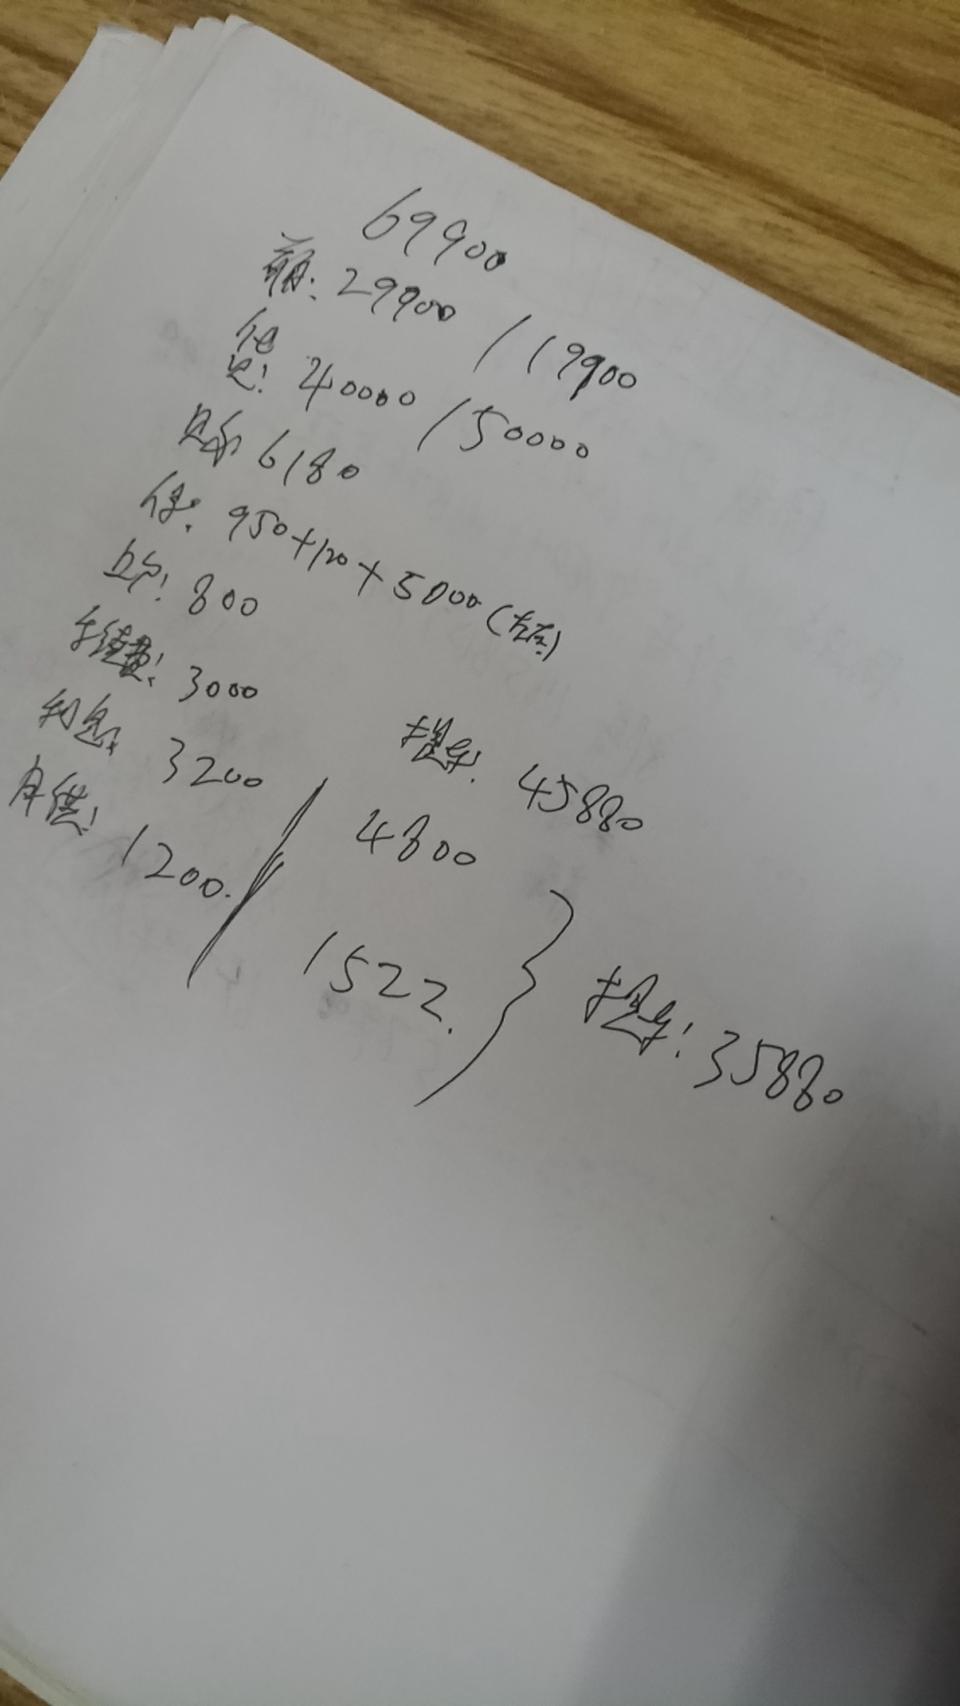 69900
首: 29900 / 19900
贷
: 40000 / 50000
6180
保: 950+120+5000 (左右)
上户: 800
手续费: 3000
利息: 3200 / 4800
月供: 1200. / 1522.
提车: 45880
提车: 35880